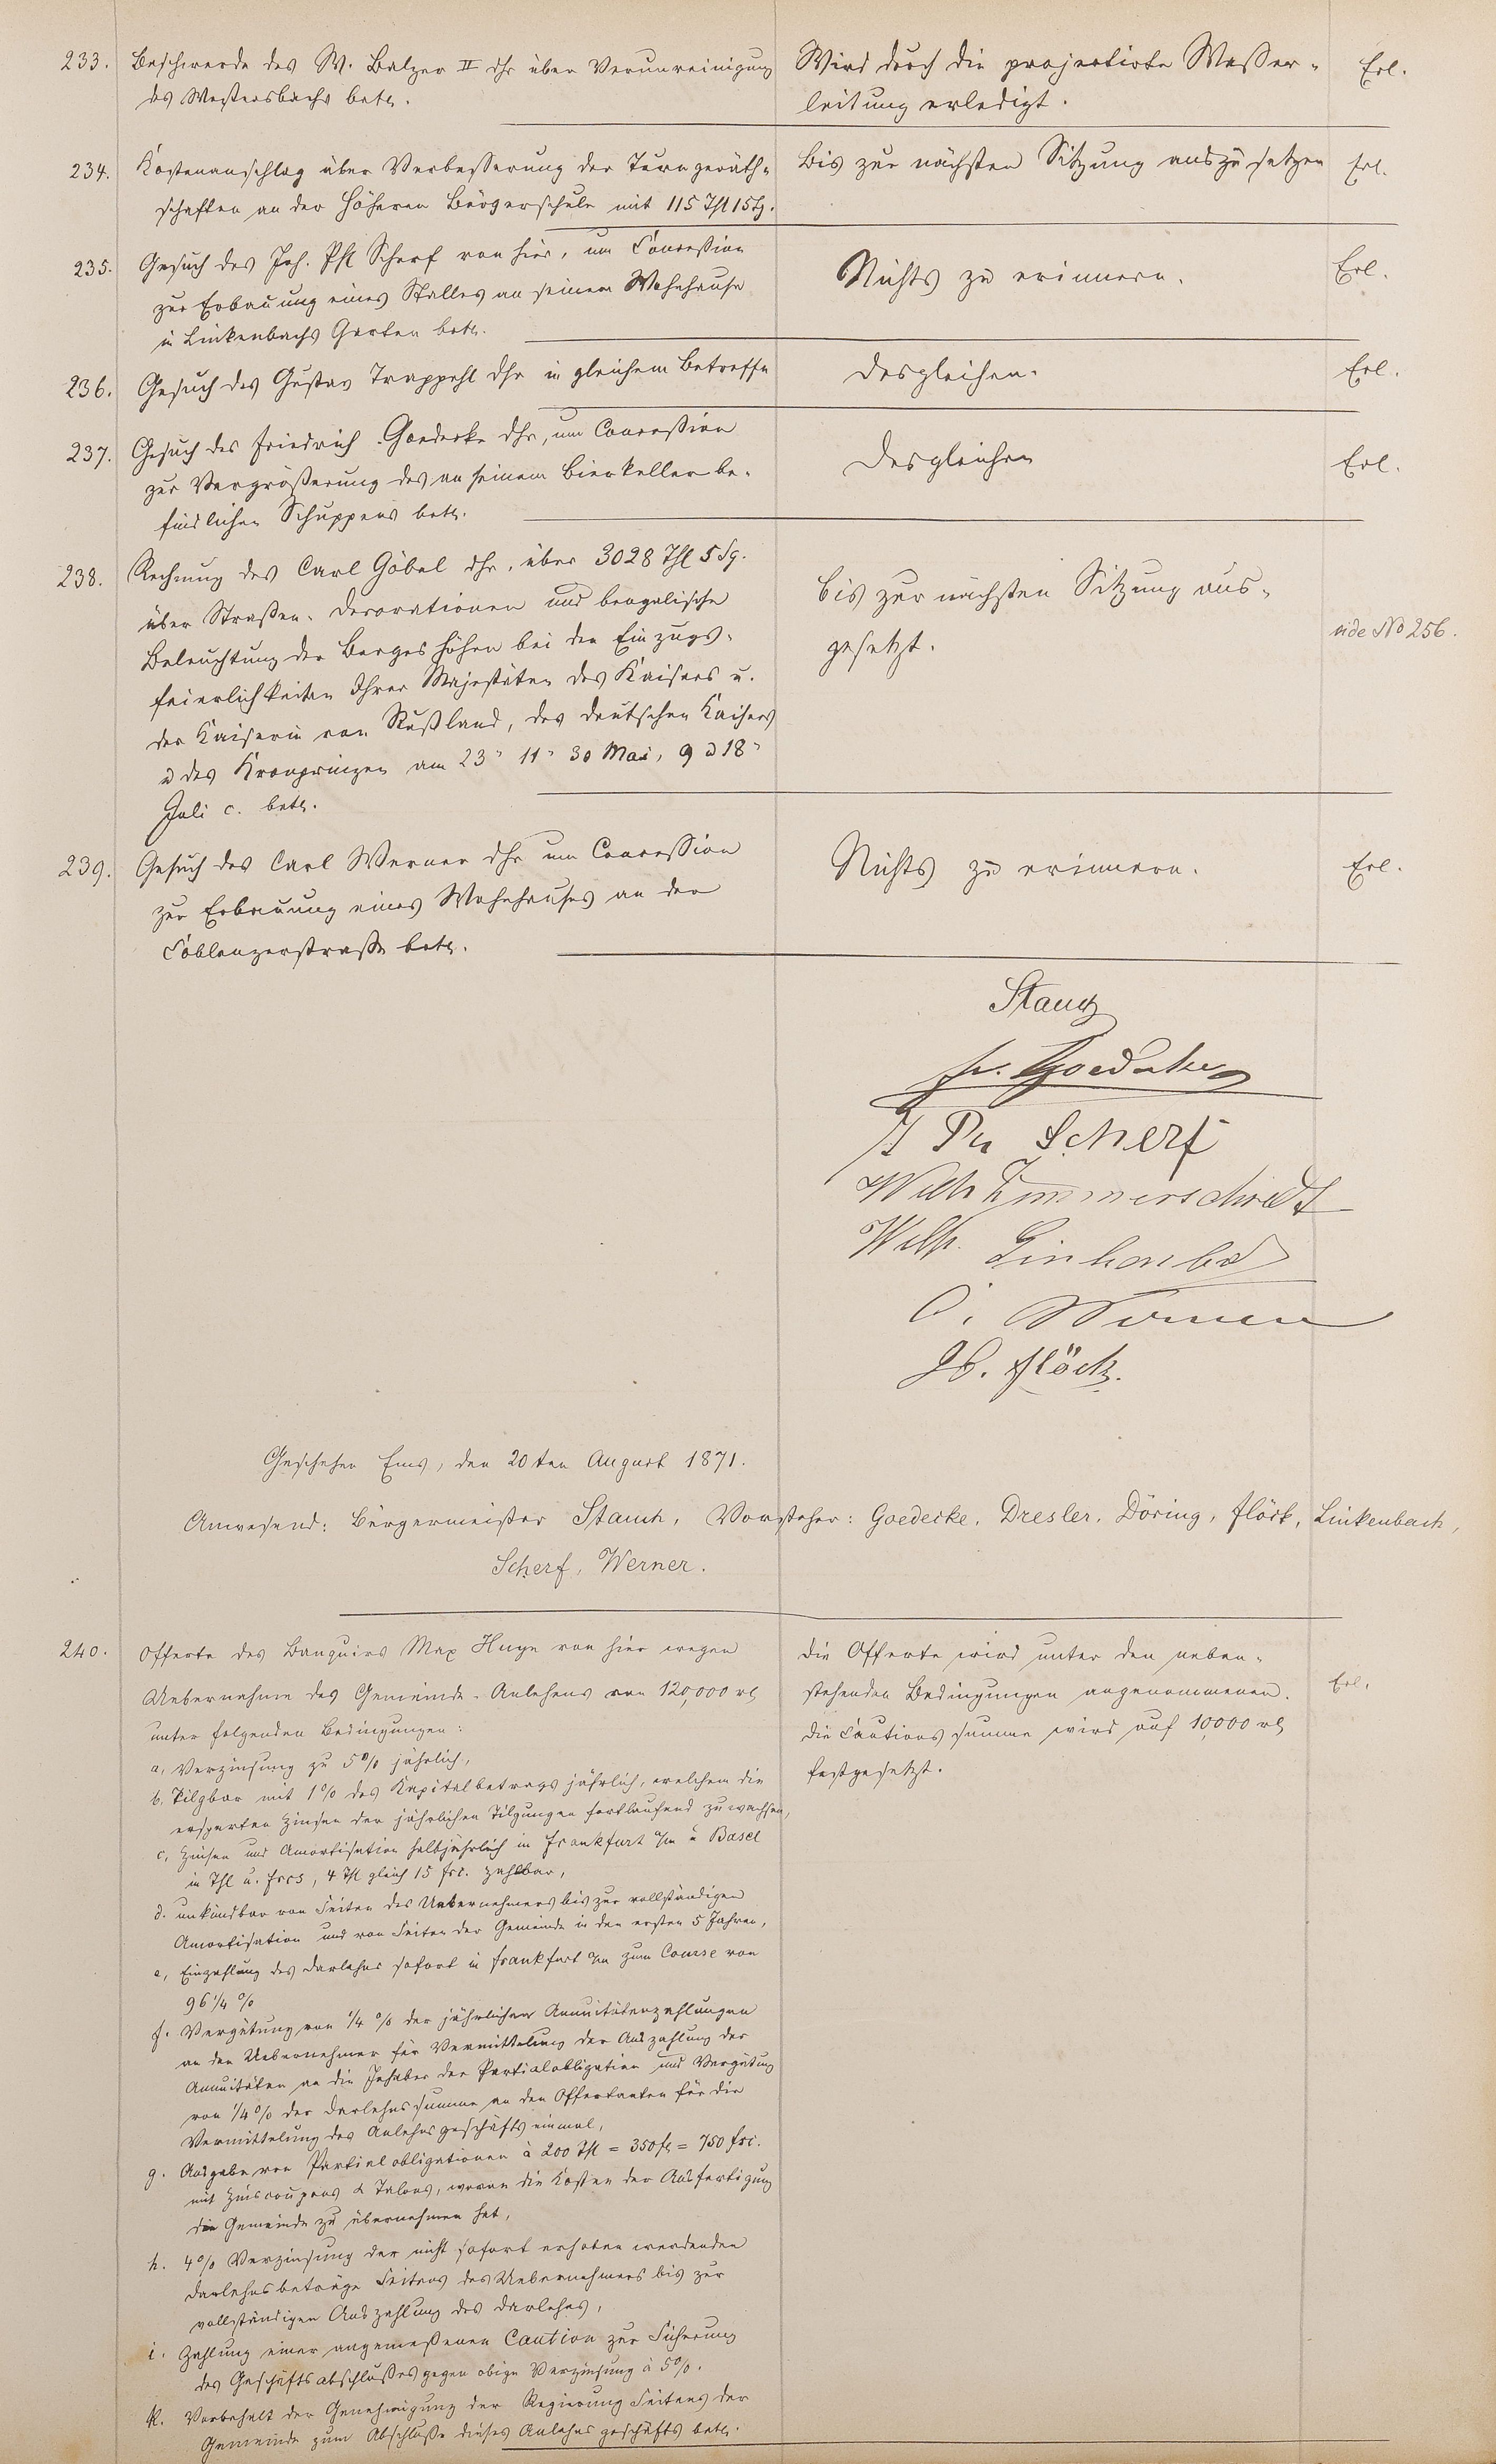 233. Beschwerde des W. Balzer II dhr über Verunreinigung
des Westersbachs betr.
Wird durch die projectirte Wasser-
leitung erledigt.
Erl.
234. Kostenanschlag über Verbesserung der Turngeräth-
schaften an der Höheren Bürgerschule mit 115 Thl 15 Sg.
Bis zur nächsten Sitzung auszusetzen
Erl.
235. Gesuch des Joh. Phl Scherf von hier, um Concession
zur Erbauung eines Stalles an seinem Wohnhause
in Linkenbachs Garten betr.
Nichts zu erinnern.
Erl.
236. Gesuch des Gustav Trappehl dhr in gleichem Betreffe
Desgleichen.
Erl.
237. Gesuch des Friedrich Goedecke dhr, um Concession
zur Vergrößerung des an seinem Bierkeller be-
findlichen Schuppens betr.
Desgleichen
Erl.
238. Rechnung des Carl Göbel dhr. über 3028 Thl 5 Sg.
über Straßen-Decorationen und bengalische
Beleuchtung der Berges höhen bei den Einzugs-
feierlichkeiten Ihrer Majestäten des Kaisers u.
der Kaiserin von Rußland, des deutschen Kaisers
u des Kronprinzen am 23" 11" 30 Mai, 9 u 18"
Juli c. betr.
Bis zur nächsten Sitzung aus-
gesetzt.
vide No 256.
239. Gesuch des Carl Werner dhr um Concession
zur Erbauung eines Wohnhauses an der
Coblenzerstraße betr.
Nichts zu erinnern.
Erl.
Stauch
Fr. Goedecke
J Ph Scherf
Wilh Zimmerschied
Wilh. Linkenbach
C. Werner
Jb. Flöck.
Geschehen Ems, den 20ten August 1871.
Anwesend: Bürgermeister Stauch, Vorsteher: Goedecke, Dresler, Döring, Flöck, Linkenbach,
Scherf, Werner.
240. Offerte des Banquirs Max Huyn von hier wegen
Uebernahme des Gemeinde-Anlehens von 120,000 rl
unter folgenden Bedingungen:
a, Verzinsung zu 5% jährlich,
b. Tilgbar mit 1% des Kapitalbetrags jährlich, welchem die
ersparten Zinsen der jährlichen Tilgungen fortlaufend zuwachsen,
c, Zinsen und Amortisation halbjährlich in Frankfurt a/m u Basel
in Thl u. Frcs, 4 Thl gleich 15 frc. zahlbar,
d. unkündbar von Seiten des Unternehmers bis zur vollständigen
Amortisation und von Seiten der Gemeinde in den ersten 5 Jahren,
e, Einzahlung des Darlehns sofort in Frankfurt a/m zum Course von
96 1/4 %
f. Vergütung von 1/4 % der jährlichen Annuitätenzahlungen
an den Uebernehmer für Vermittelung der Auszahlung der
Annuitäten an die Inhaber der Partialobligation und Vergütung
von 1/4 % der Darlehnssumme an den Offertanten für die
Vermittelung des Anlehnsgeschäfts einmal,
g. Ausgabe von Partialobligationen à 200 Thl = 350 fl = 750 frc.
mit Zinscoupons & Talons, wovon die Kosten der Ausfertigung
die Gemeinde zu übernehmen hat,
h. 4% Verzinsung der nicht sofort erhoben werdenden
Darlehnsbeträge Seitens des Uebernehmers bis zur
vollständigen Auszahlung des Darlehns,
i. Zahlung einer angemeßenen Caution zur Sicherung
des Geschäftsabschlußes gegen obige Verzinsung à 5%.
k. Vorbehalt der Genehmigung der Regierung Seitens der
Gemeinde zum Abschluße dieses Anlehns geschäfts betr.
Die Offerte wird unter den neben-
stehenden Bedingungen angenommenen.
Die Cautions summe wird auf 10,000 rl
festgesetzt.
Erl.